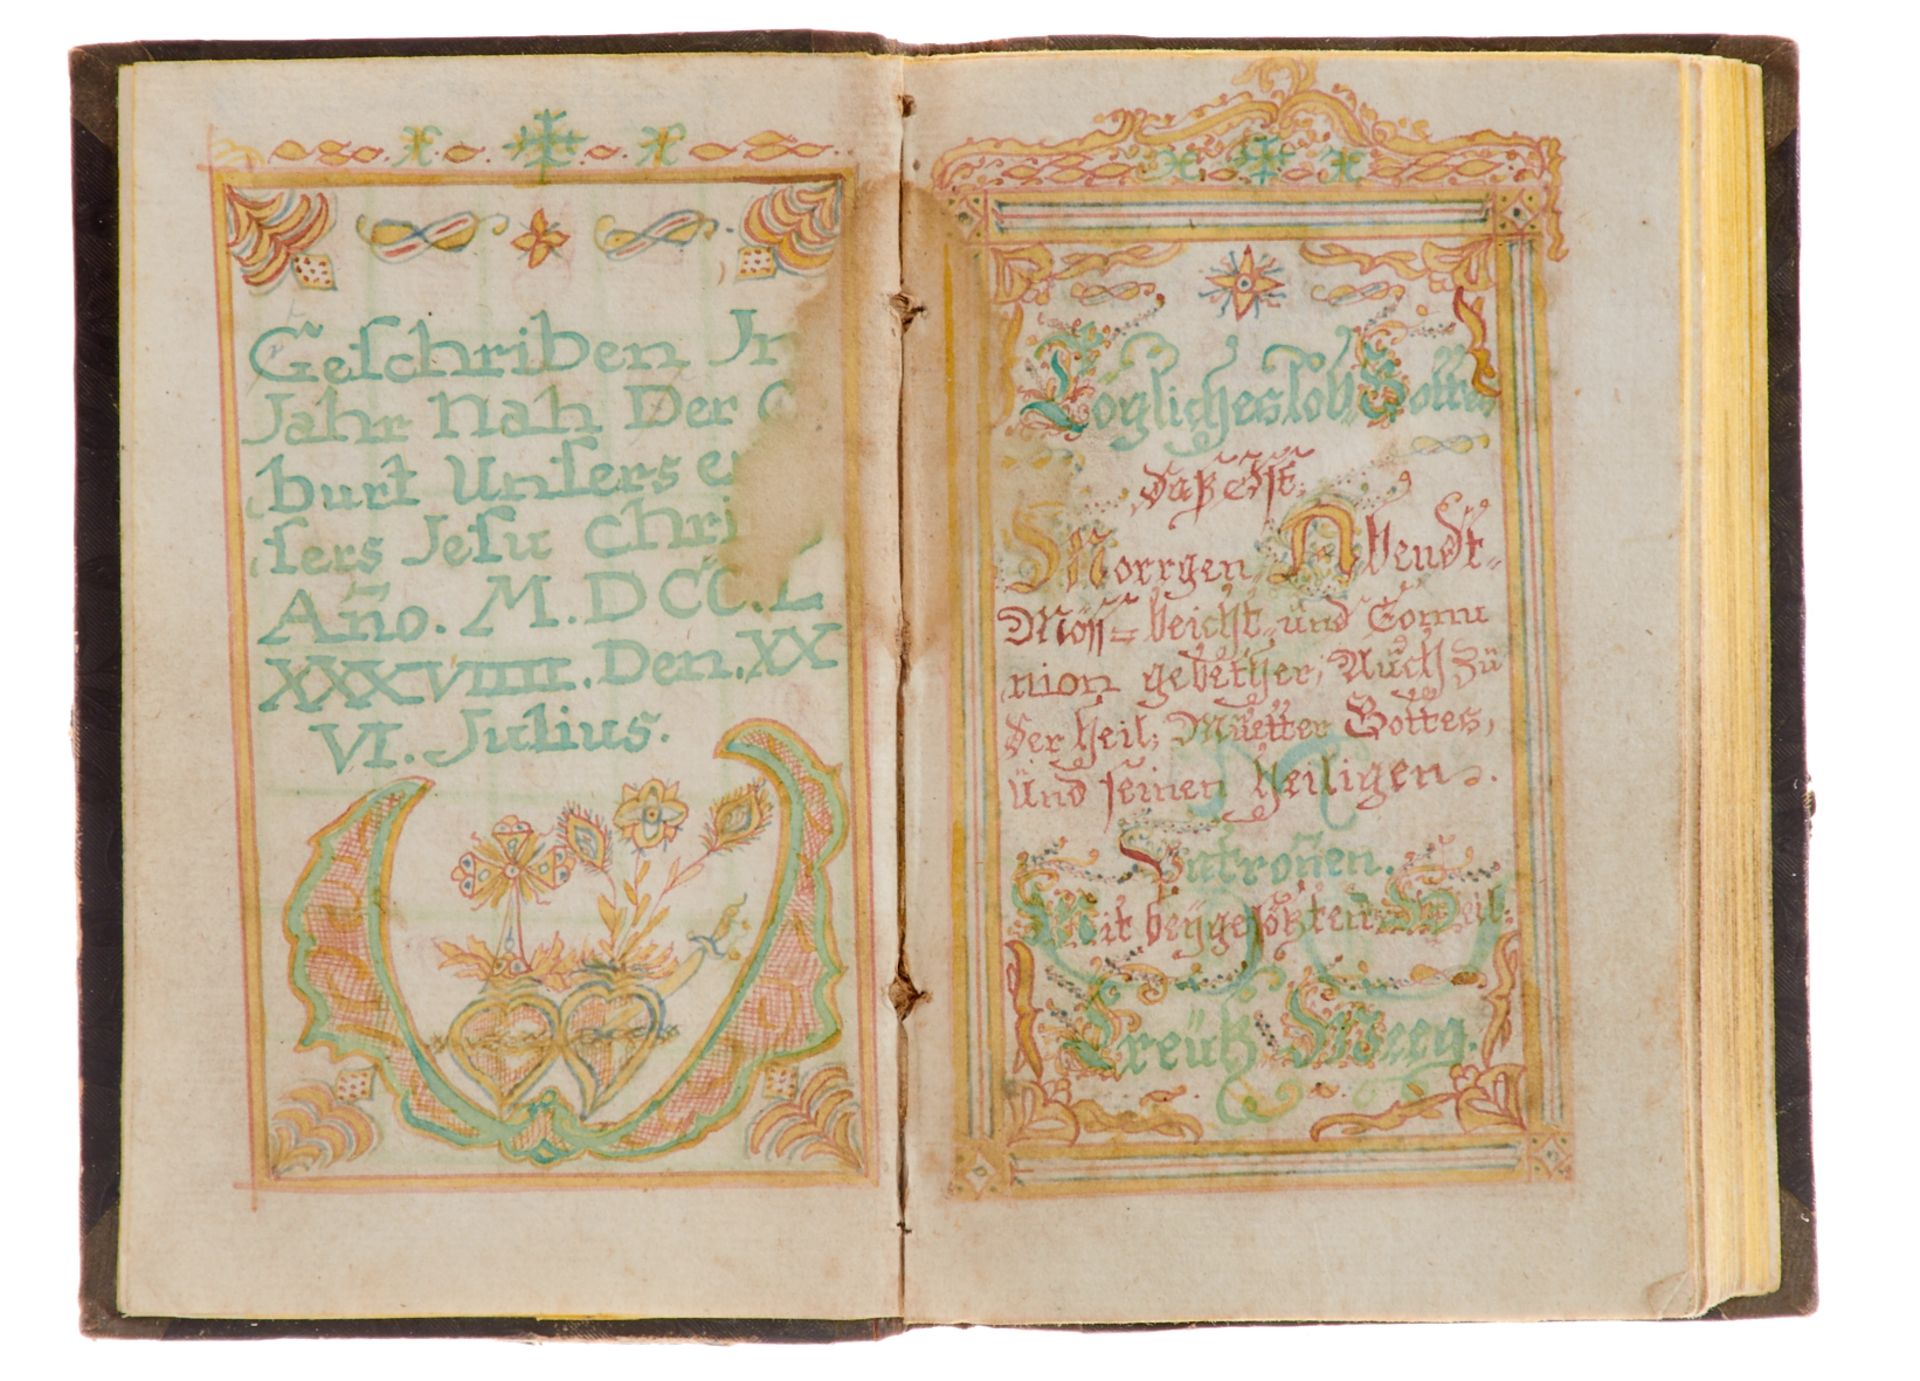 Geschriben Jn
Jahr Nah Der G
burt Unsers er
sers Jesu Chri
Año. M.DCC.L
XXXVIIII. Den. XX
VI. Julius.
Töglicheslob Gottes
daß Jst,
Morrgen, Abendt=
Möss= beicht, und Comu
nion gebether, Auch zü
der heil; Muetter Gottes,
Und seinen heiligen.
Patroñen.
Mit beygesötzten Heil:
Creütz Weeg.